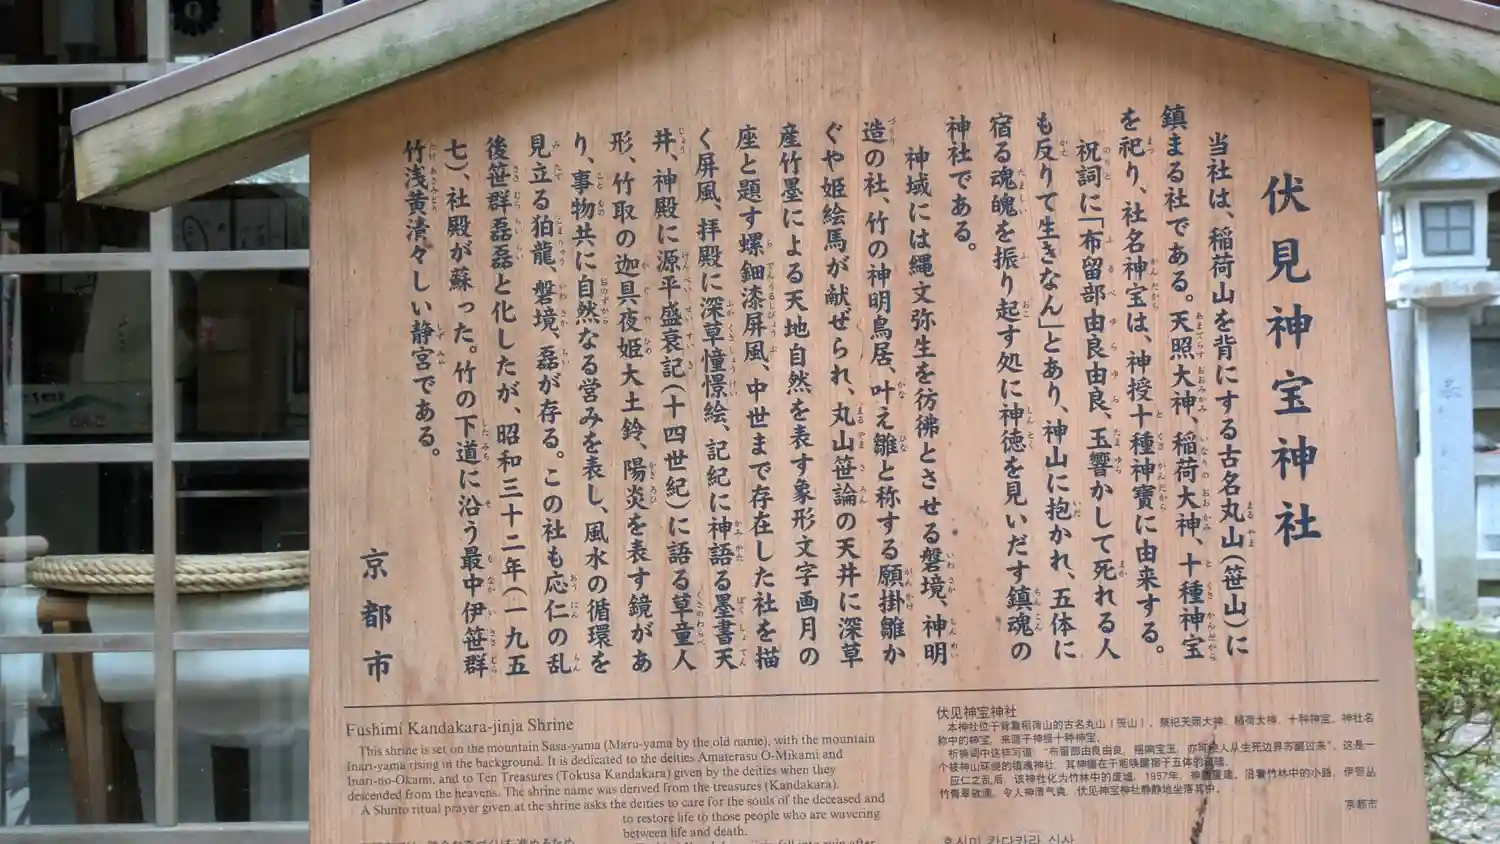 伏見神宝神社
当社は、稲荷山を背にする古名丸山（笹山）に
鎮まる社である。天照大神、稲荷大神、十種神宝
を祀り、社名神宝は、神授十種神寶に由来する。
祝詞に「布留部由良由良、玉響かして死れる人
も反りて生きなん」とあり、神山に抱かれ、五体に
宿る魂魄を振り起す処に神徳を見いだす鎮魂の
神社である。
神域には縄文弥生を彷彿とさせる磐境、神明
造の社、竹の神明鳥居、叶え雛と称する願掛雛か
ぐや姫絵馬が献ぜられ、丸山笹論の天井に深草
産竹墨による天地自然を表す象形文字画月の
座と題す螺鈿漆屏風、中世まで存在した社を描
く屏風、拝殿に深草憧憬絵、記紀に神語る墨書天
井、神殿に源平盛衰記（十四世紀）に語る草童人
形、竹取の迦具夜姫大土鈴、陽炎を表す鏡があ
り、事物共に自然なる営みを表し、風水の循環を
見立る狛龍、磐境、磊が存る。この社も応仁の乱
後笹群磊磊と化したが、昭和三十二年（一九五
七）、社殿が蘇った。竹の下道に沿う最中伊笹群
竹浅黄清々しい静宮である。
京都市
Fushimi Kandakara-jinja Shrine
This shrine is set on the mountain Sasa-yama (Maru-yama by the old name), with the mountain
Inari-yama rising in the background. It is dedicated to the deities Amaterasu O-Mikami and
Inari-no-Okami, and to Ten Treasures (Tokusa Kandakara) given by the deities when they
descended from the heavens. The shrine name was derived from the treasures (Kandakara).
A Shinto ritual prayer given at the shrine asks the deities to care for the souls of the deceased and
to restore life to those people who are wavering
between life and death.
伏见神宝神社
本神社位于背靠稻荷山的古名丸山（笹山），祭祀天照大神、稻荷大神、十种神宝。神社名
称中的神宝，来源于神授十种神宝。
祈祷词中这样写道：“布留部由良由良，摇响宝玉，亦可使人从生死边界苏醒过来”。这是一
个被神山环绕的镇魂神社，
应仁之乱后，该神社化为竹林中的废墟，1957年，神殿重建。沿着竹林中的小路，
令人神清气爽，伏见神宝神社静静地坐落其中。
京都市
후시미 칸다카라 신사